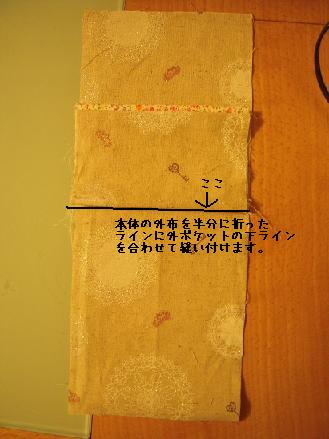 ここ
本体の外布を半分に折った
ラインに外ポケットの下ライン
を合わせて縫い付けます。